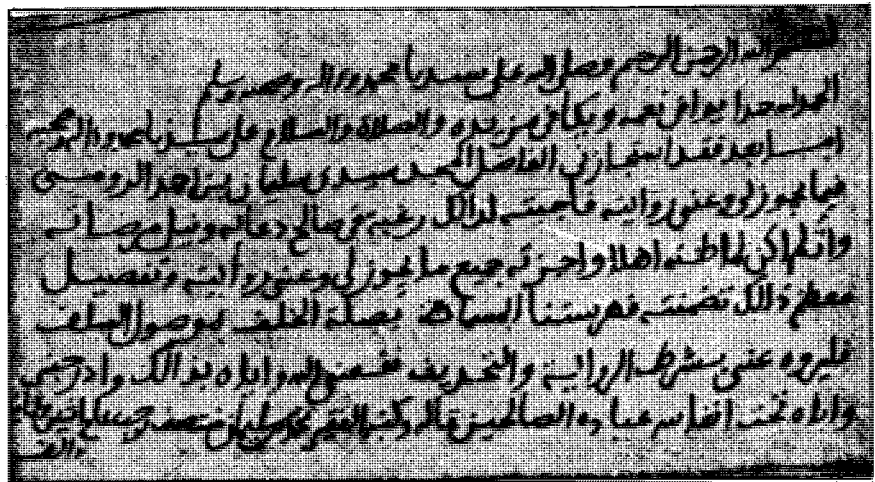 بسم الله الرحمن الرحيم وصلى الله على سيدنا محمد واله وصحبه وسلم
الحمد لله حمدا يوافي نعمه ويكافئ مزيده والصلاة والسلام على سيدنا محمد واله وصحبه
اما بعد فقد استجازني الفاضل المجد سيدي سليمان بن احمد الروداني
فيما يجوز لي وعني روايته فاجبته لذالك رغبة في صالح دعائه ونيل مرضاته
وان لم اكن لما ظنه اهلا واجزته جميع ما يجوز لي وعني روايته وتفصيل
معظم ذالك تضمنته فهرستنا المسماة بصلة الخلف بموصول السلف
فليروه عني بشرط الرواية والتحديث نفعني الله واياه بذالك وادرجني
واياه تحت انفاس عباده الصالحين قاله وكتبه الفقير محمد بن سليمان منتصف رجب
والف